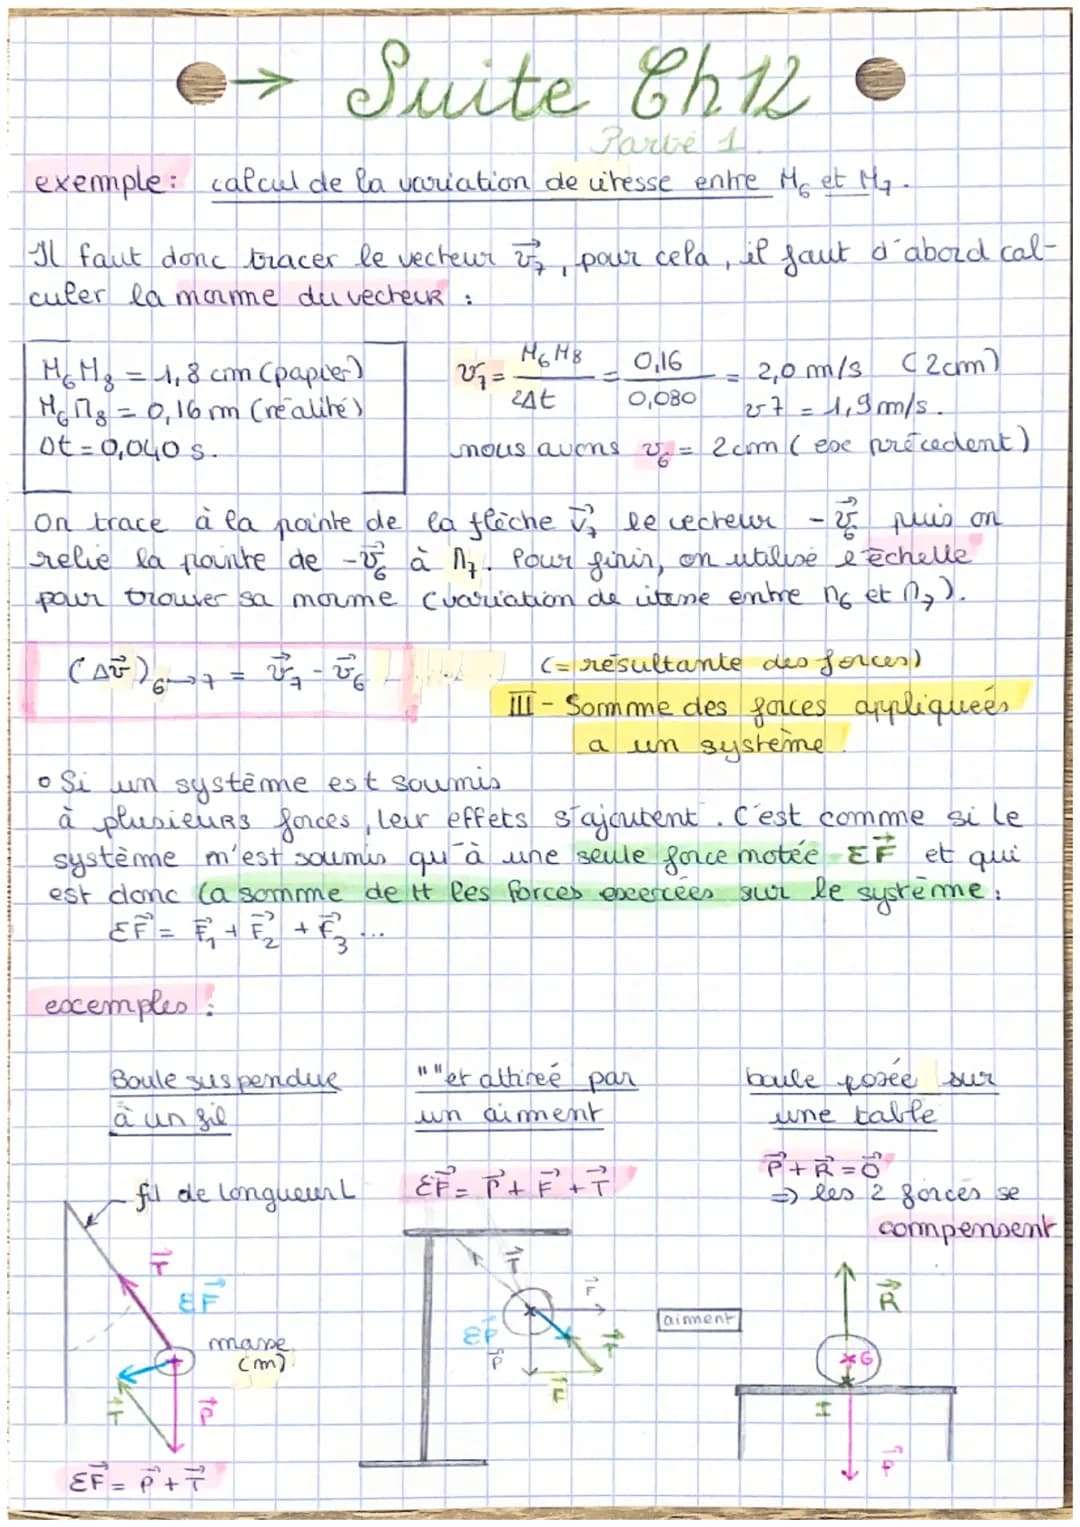 → Suite Ch 12
Partie 1
exemple: calcul de la variation de vitesse entre M₆ et M₇.
Il faut donc tracer le vecteur v⃗₇, pour cela, il faut d'abord cal-
culer la norme du vecteur :
M₆M₈ = 1,8 cm (papier)
M₆M₈ = 0,16 m (réalité)
Δt = 0,040 s.
v₇ = M₆M₈ / 2Δt = 0,16 / 0,080 = 2,0 m/s (2cm)
v7 = 1,9 m/s.
nous avons v₆ = 2cm (exe précedent)
On trace à la pointe de la flèche v⃗₇ le vecteur -v⃗₆ puis on
relie la pointe de -v⃗₆ à M₇. Pour finir, on utilise l'échelle
pour trouver sa norme (variation de vitesse entre M₆ et M₇).
(Δv⃗)₆→₇ = v⃗₇ - v⃗₆
(= résultante des forces)
III - Somme des forces appliqueés
a un système.
• Si un système est soumis
à plusieurs forces, leur effets s'ajoutent. C'est comme si le
système n'est soumis qu'à une seule force notée ΣF⃗ et qui
est donc la somme de tt les forces exercées sur le système:
ΣF⃗ = F⃗₁ + F⃗₂ + F⃗₃ ...
exemples :
Boule suspendue
à un fil
" " et attireé par
un aimment
boule posée sur
une table
fil de longueur L
ΣF⃗ = P⃗ + F⃗ + T⃗
P⃗ + R⃗ = 0⃗
=> les 2 forces se
compensent
T⃗
ΣF⃗
masse
(m)
T⃗
P⃗
ΣF⃗ = P⃗ + T⃗
T⃗
F⃗
ΣF⃗
P⃗
T⃗
F⃗
aimment
R⃗
G
I
P⃗